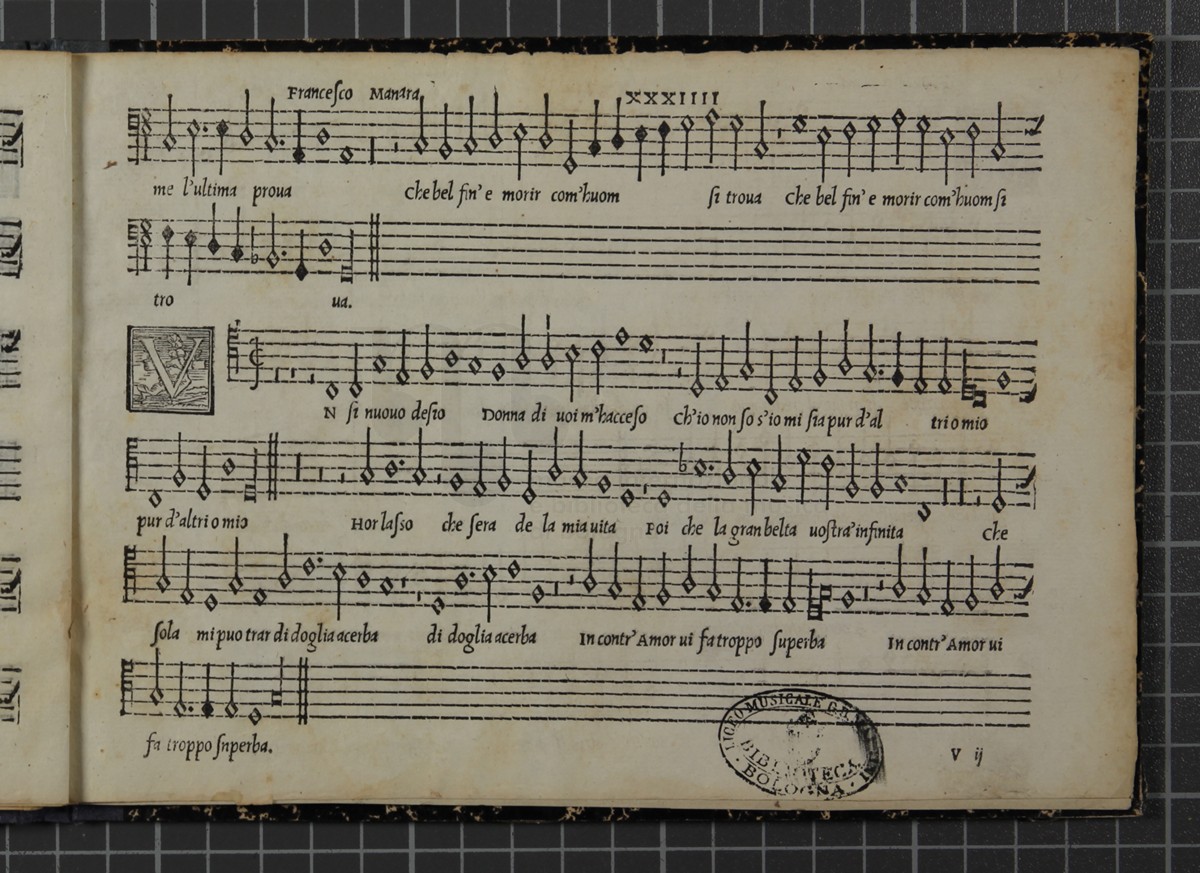 Francesco Manara XXXIIII
me l'ultima proua Che bel fin' e morir com'huom si troua Che bel fin' e morir com'huom si
tro ua.
V
N si nuouo desio Donna di uoi m'hacceso Ch'io non so s'io mi sia pur d'al tri o mio
pur d'altri o mio Hor lasso che sera de la mia uita Poi che la gran belta uostra' infinita che
sola mi puo trar di doglia acerba di doglia acerba In contr' Amor ui fa troppo superba In contr' Amor ui
fa troppo snperba.
LICEO MUSICALE G.B.
BIBLIOTECA
BOLOGNA
V ij